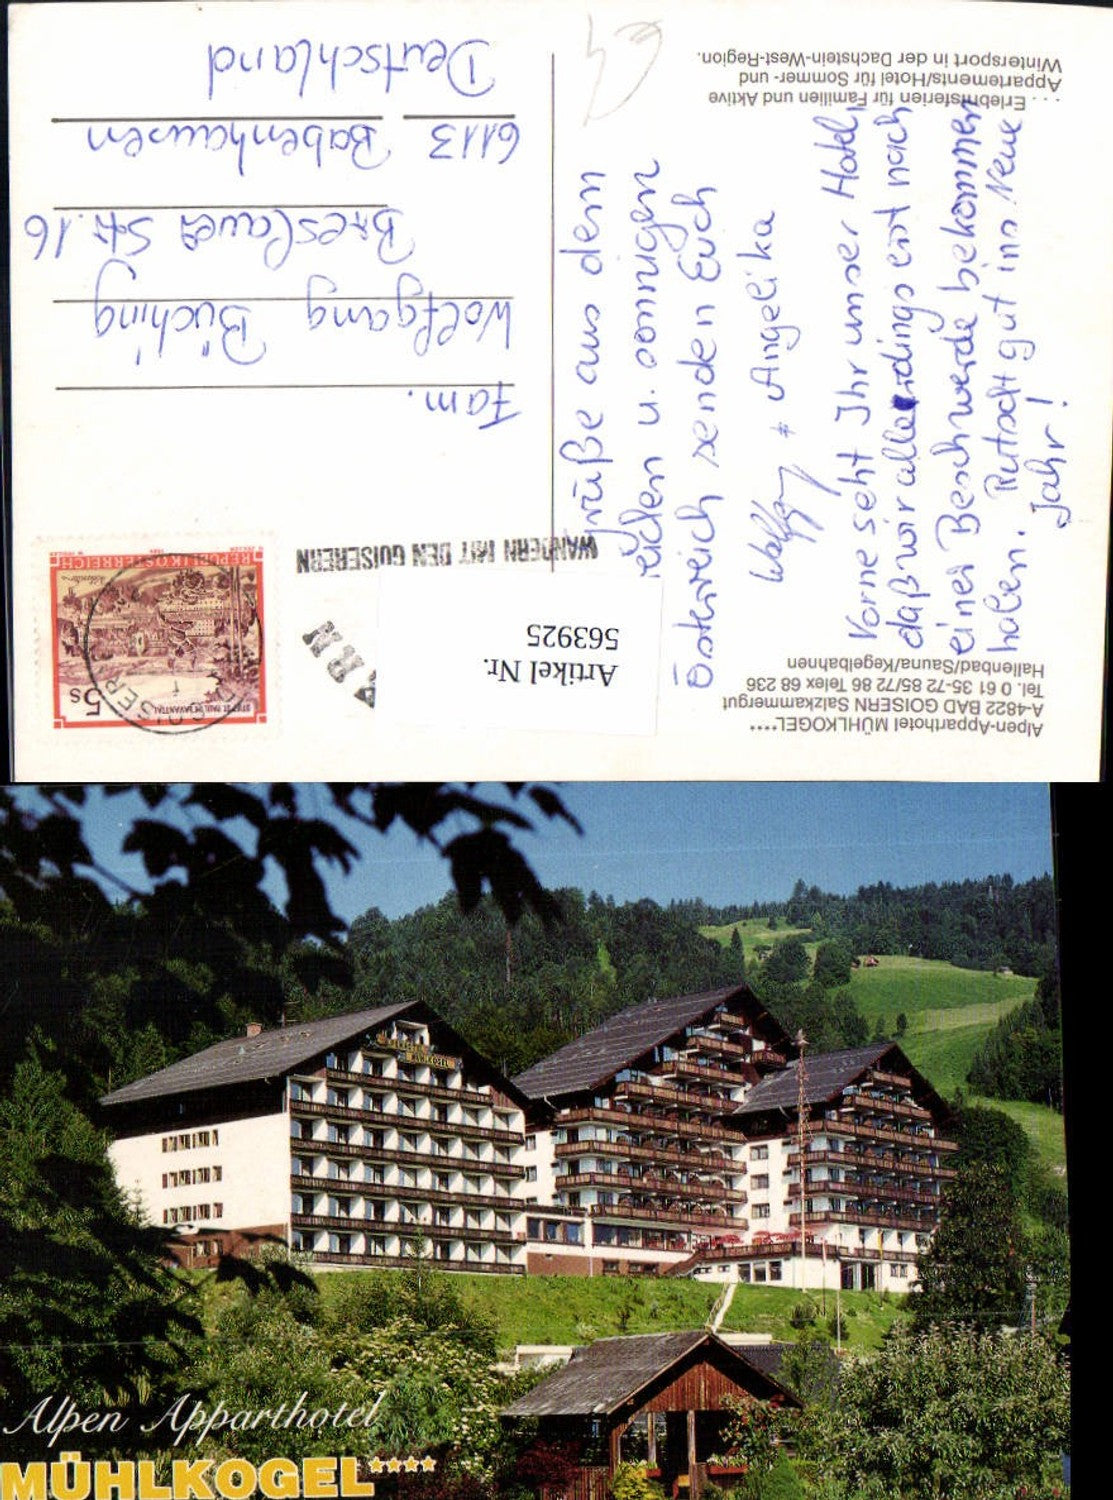 . . . Erlebnisferien für Familien und Aktive
Appartements/Hotel für Sommer- und
Wintersport in der Dachstein-West-Region.
Grüße aus dem
u. sonnigen
Österreich senden Euch
Wolfgang + Angelika
Vorne seht Ihr unser Hotel,
daß wir allerdings erst nach
einer Beschwerde bekommen
haben. Rutscht gut ins Neue
Jahr!
Alpen-Apparthotel MÜHLKOGEL****
A-4822 BAD GOISERN Salzkammergut
Tel. 0 61 35-72 85/72 86 Telex 68 236
Hallenbad/Sauna/Kegelbahnen
WANDERN MIT DEN GOISERERN
REPUBLIK ÖSTERREICH
STIFT ST. PAUL IM LAVANTTAL
5s
Fam.
Wolfgang Büching
Breslauer Str. 16
6113 Babenhausen
Deutschland
Artikel Nr.
563925
MÜHLKOGEL
Alpen Apparthotel
MÜHLKOGEL****